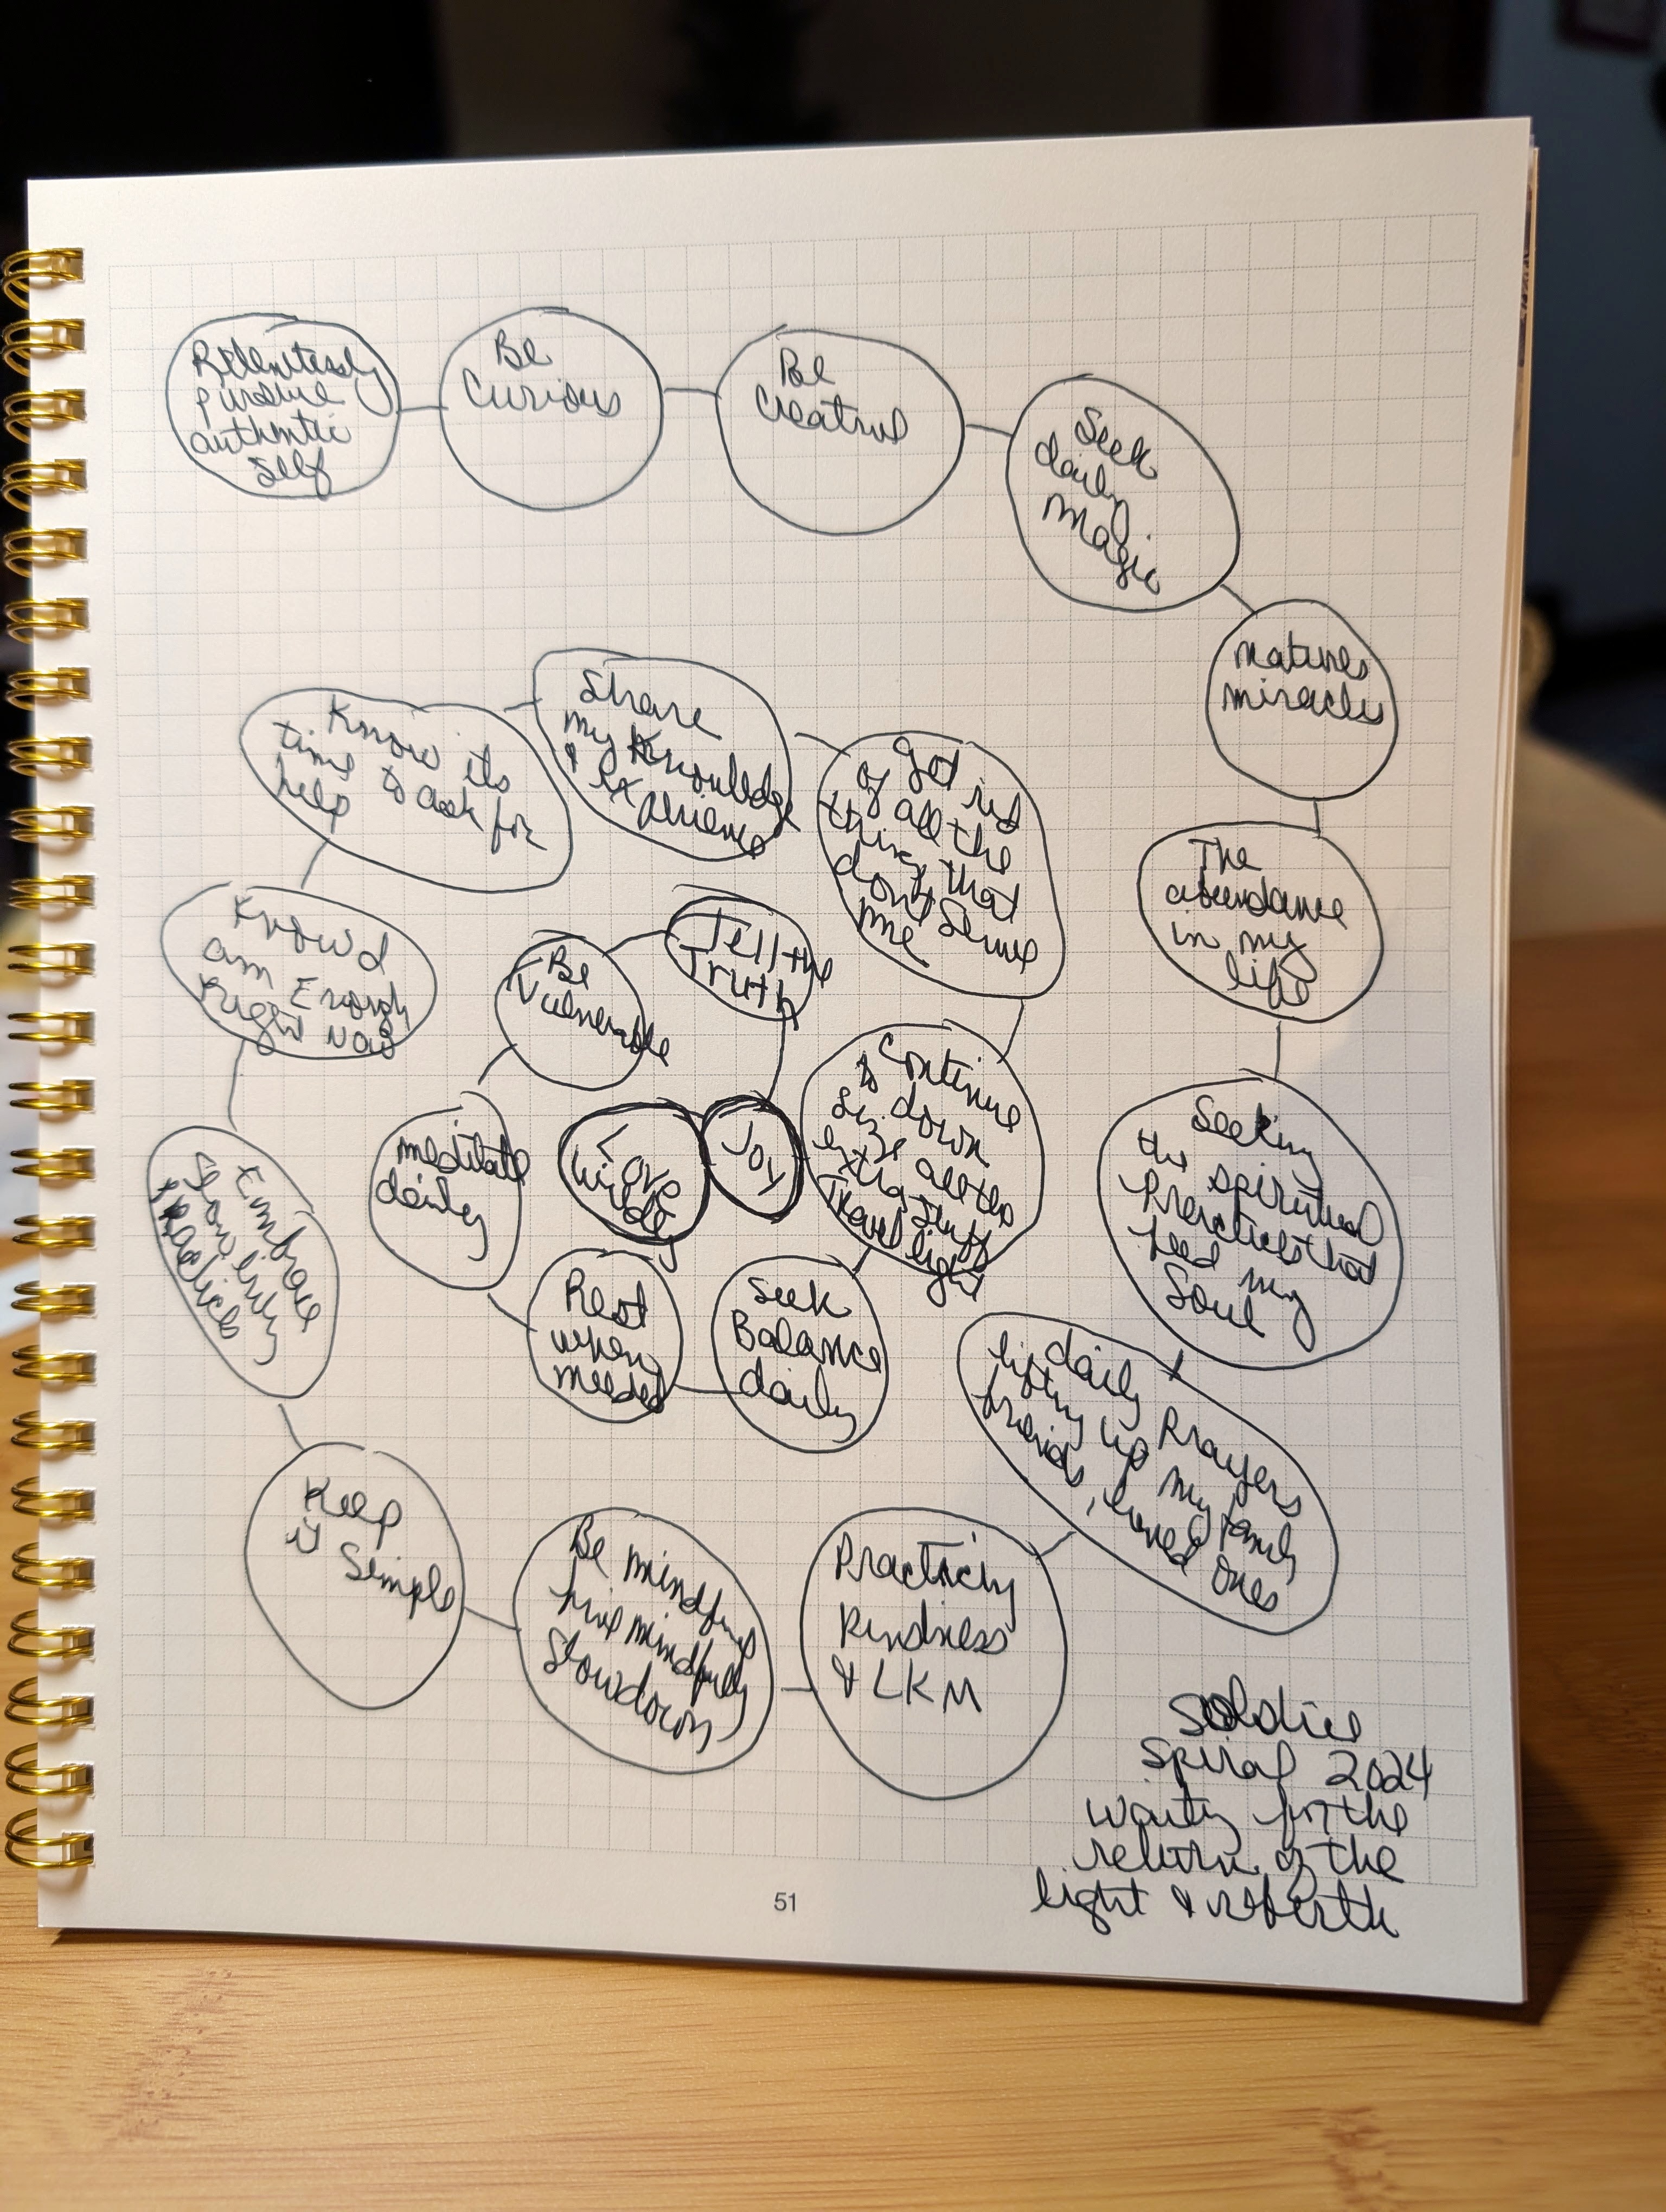 Relentlessly
pursue
authentic
self
Be
Curious
Be
Creative
Seek
daily
magic
natures
miracles
The
abundance
in my
life
Seeking
the spiritual
Practices that
feed my
Soul
daily Prayers
lifting up my family
friends, loved ones
Practicing
Kindness
& LKM
Be mindful
live mindfully
Slowdown
Keep
it Simple
Embrace
slow living
practices
Know I
am Enough
right now
Know its
time to ask for
help
Share
my Knowledge
& experience
get rid
of all the
things that
dont serve
me
Continue
to down
size all the
extra stuff
Travel light
Seek
Balance
daily
Rest
when
needed
meditate
daily
Be
Vulnerable
Tell the
Truth
Joy
Love
wildly
Solstice
spiral 2024
waiting for the
return of the
light & rebirth
51